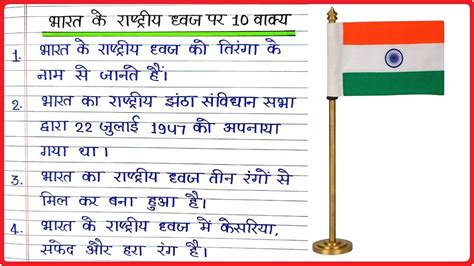 भारत के राष्ट्रीय ध्वज पर 10 वाक्य
1. भारत के राष्ट्रीय ध्वज को तिरंगा के
नाम से जानते हैं।
2. भारत का राष्ट्रीय झंठा संविधान सभा
द्वारा 22 जुलाई 1947 को अपनाया
गया था।
3. भारत का राष्ट्रीय ध्वज तीन रंगों से
मिल कर बना हुआ है।
4. भारत के राष्ट्रीय ध्वज में केसरिया,
सफेद और हरा रंग है।